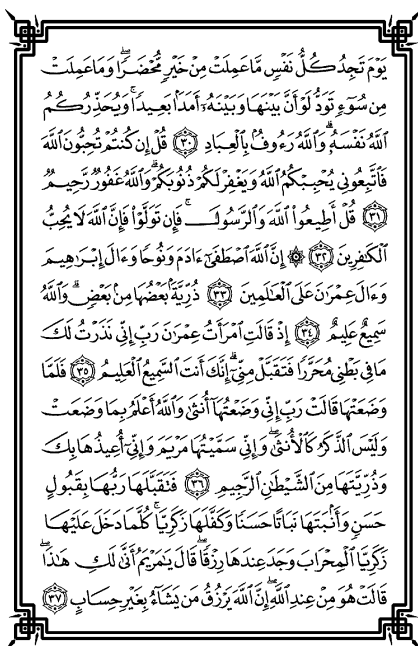 يَوْمَ تَجِدُ كُلُّ نَفْسٍ مَّا عَمِلَتْ مِنْ خَيْرٍ مُّحْضَرًا وَمَا عَمِلَتْ
مِن سُوٓءٍ تَوَدُّ لَوْ أَنَّ بَيْنَهَا وَبَيْنَهُۥٓ أَمَدَۢا بَعِيدًا ۗ وَيُحَذِّرُكُمُ
ٱللَّهُ نَفْسَهُۥ ۗ وَٱللَّهُ رَءُوفُۢ بِٱلْعِبَادِ ٣٠ قُلْ إِن كُنتُمْ تُحِبُّونَ ٱللَّهَ
فَٱتَّبِعُونِى يُحْبِبْكُمُ ٱللَّهُ وَيَغْفِرْ لَكُمْ ذُنُوبَكُمْ ۗ وَٱللَّهُ غَفُورٌ رَّحِيمٌ
٣١ قُلْ أَطِيعُوا۟ ٱللَّهَ وَٱلرَّسُولَ ۖ فَإِن تَوَلَّوْا۟ فَإِنَّ ٱللَّهَ لَا يُحِبُّ
ٱلْكَـٰفِرِينَ ٣٢ ۞ إِنَّ ٱللَّهَ ٱصْطَفَىٰٓ ءَادَمَ وَنُوحًا وَءَالَ إِبْرَٰهِيمَ
وَءَالَ عِمْرَٰنَ عَلَى ٱلْعَـٰلَمِينَ ٣٣ ذُرِّيَّةَۢ بَعْضُهَا مِنۢ بَعْضٍ ۗ وَٱللَّهُ
سَمِيعٌ عَلِيمٌ ٣٤ إِذْ قَالَتِ ٱمْرَأَتُ عِمْرَٰنَ رَبِّ إِنِّى نَذَرْتُ لَكَ
مَا فِى بَطْنِى مُحَرَّرًا فَتَقَبَّلْ مِنِّىٓ ۖ إِنَّكَ أَنتَ ٱلسَّمِيعُ ٱلْعَلِيمُ ٣٥ فَلَمَّا
وَضَعَتْهَا قَالَتْ رَبِّ إِنِّى وَضَعْتُهَآ أُنثَىٰ وَٱللَّهُ أَعْلَمُ بِمَا وَضَعَتْ
وَلَيْسَ ٱلذَّكَرُ كَٱلْأُنثَىٰ ۖ وَإِنِّى سَمَّيْتُهَا مَرْيَمَ وَإِنِّىٓ أُعِيذُهَا بِكَ
وَذُرِّيَّتَهَا مِنَ ٱلشَّيْطَـٰنِ ٱلرَّجِيمِ ٣٦ فَتَقَبَّلَهَا رَبُّهَا بِقَبُولٍ
حَسَنٍ وَأَنۢبَتَهَا نَبَاتًا حَسَنًا وَكَفَّلَهَا زَكَرِيَّا ۖ كُلَّمَا دَخَلَ عَلَيْهَا
زَكَرِيَّا ٱلْمِحْرَابَ وَجَدَ عِندَهَا رِزْقًا ۖ قَالَ يَـٰمَرْيَمُ أَنَّىٰ لَكِ هَـٰذَا ۖ
قَالَتْ هُوَ مِنْ عِندِ ٱللَّهِ ۖ إِنَّ ٱللَّهَ يَرْزُقُ مَن يَشَآءُ بِغَيْرِ حِسَابٍ ٣٧